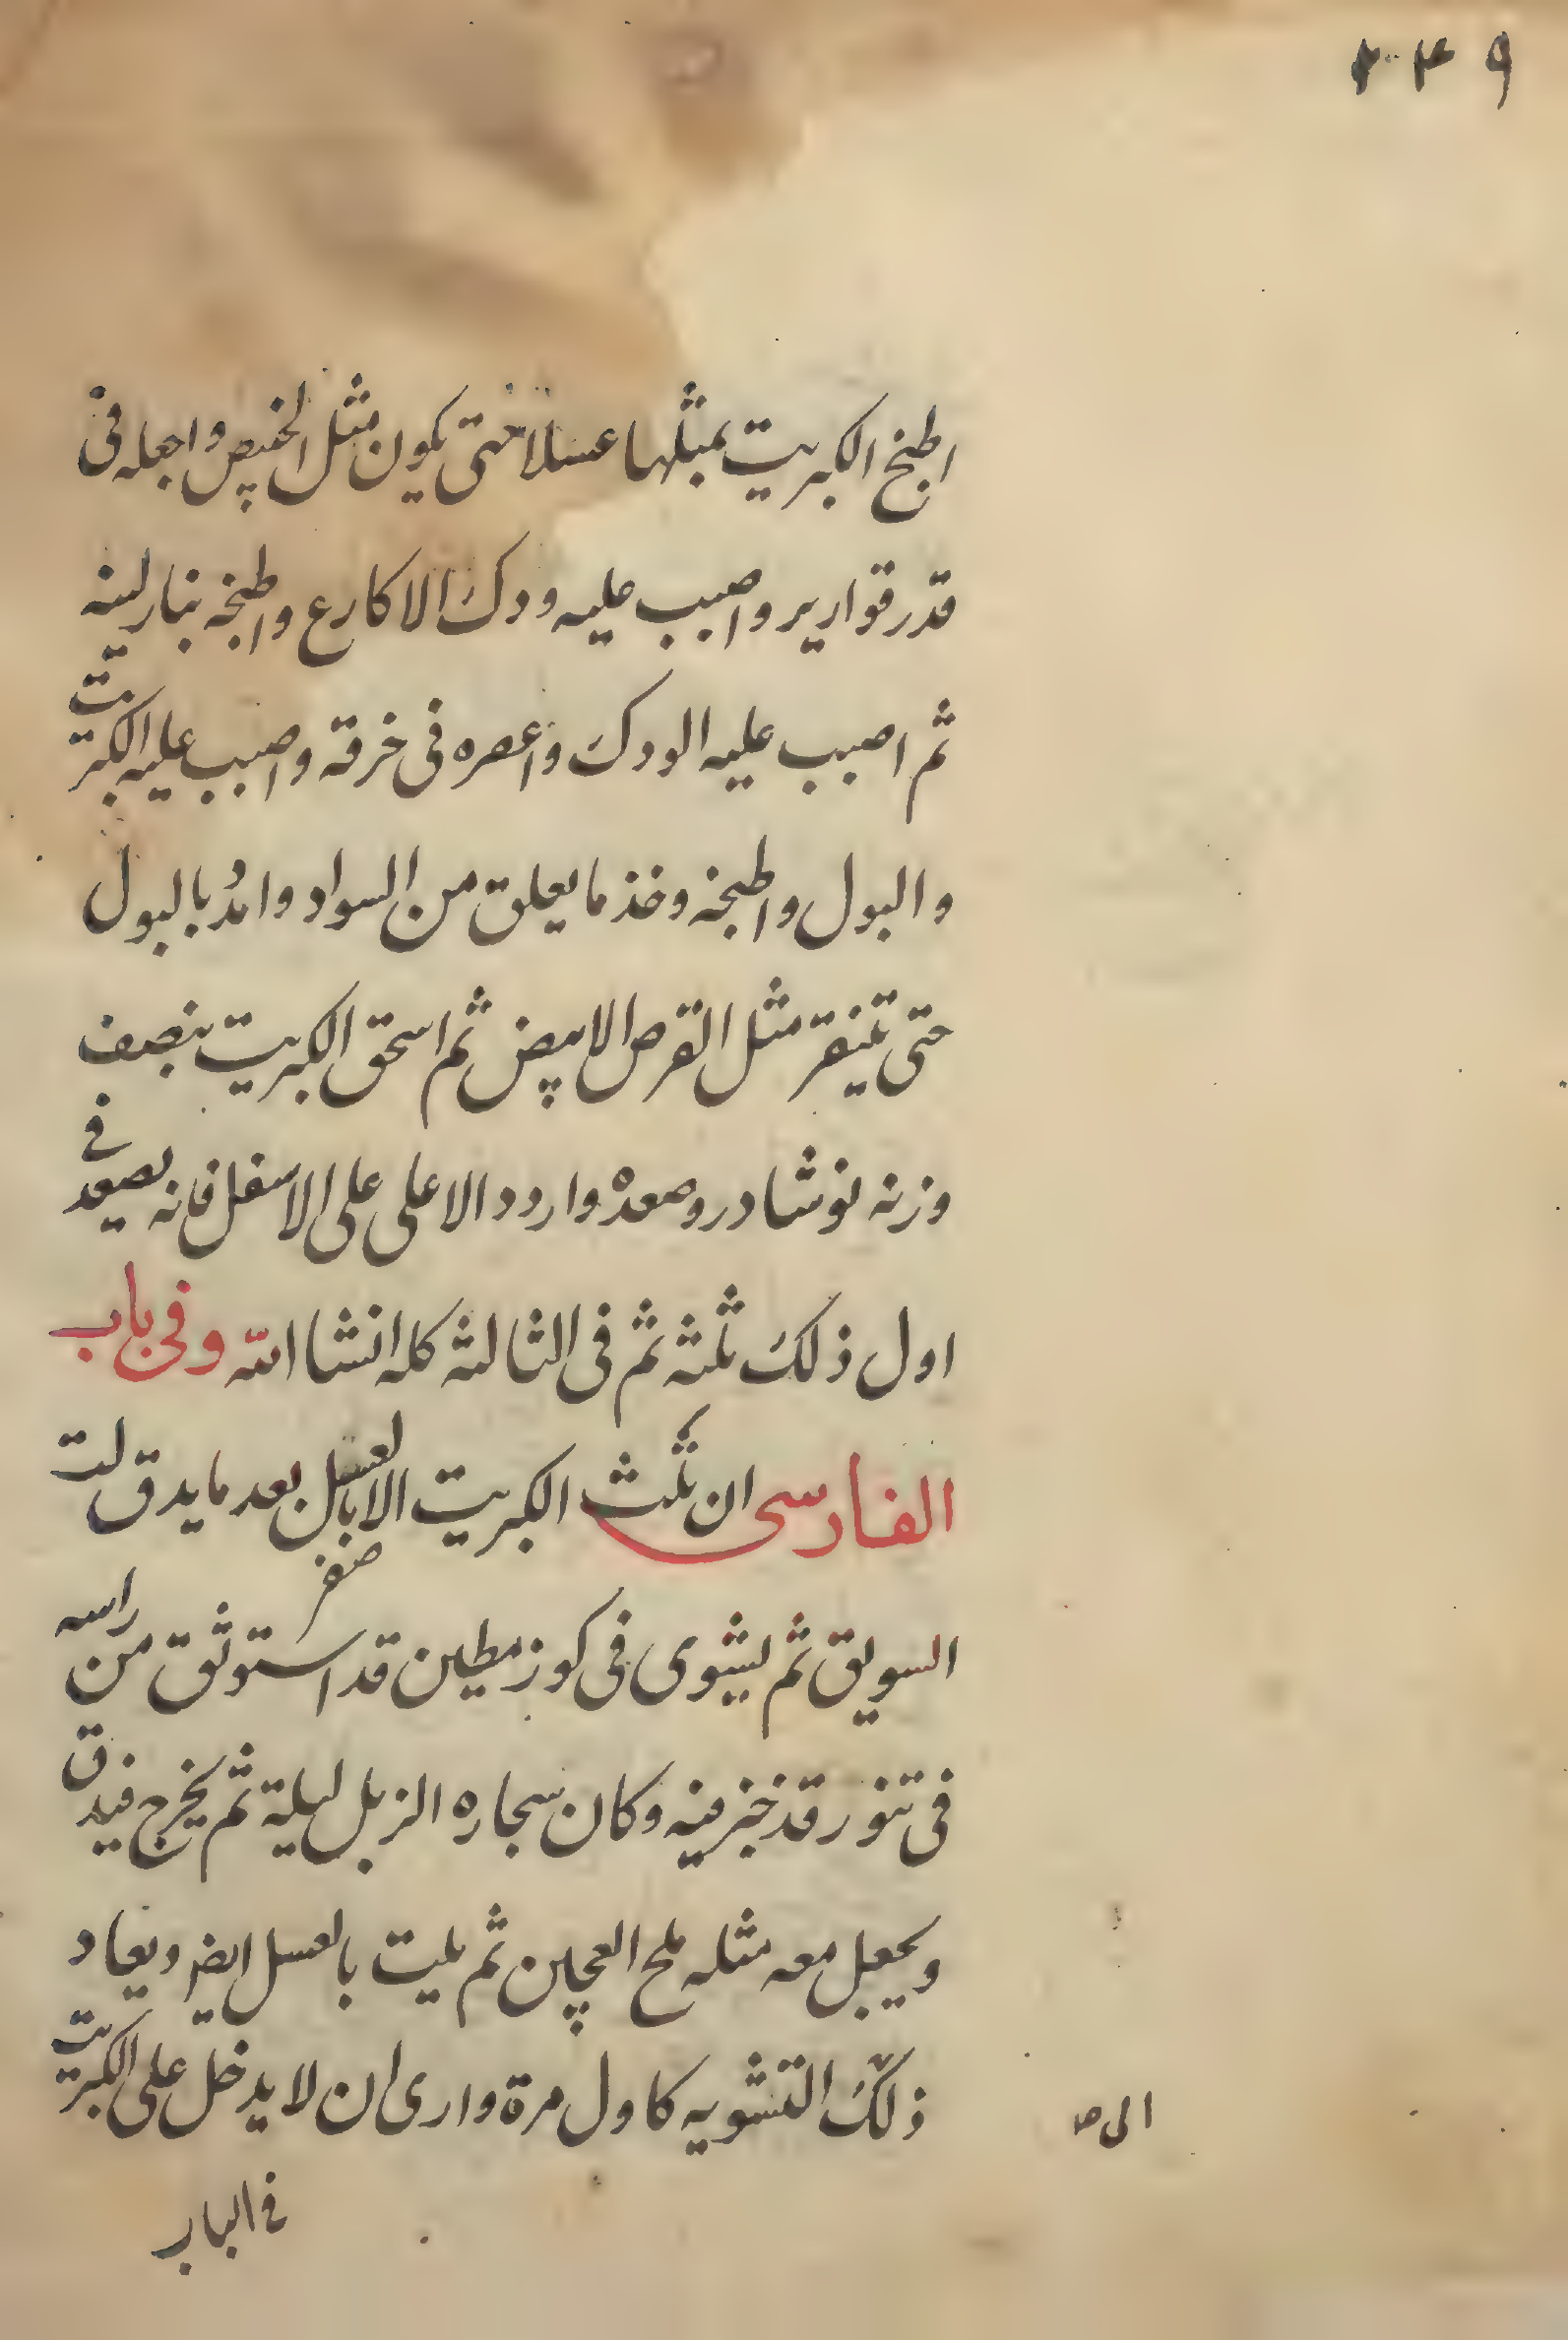 ٢٣٩
اطبخ الكبريت بمثلها عسلا حتى يكون مثل الخبيص واجعله فى
قدر قوارير واصبب عليه ودك الاكارع واطبخه بنار لينه
ثم اصبب عليه الودك واعصره فى خرقة واصبب عليه الكبريت
والبول واطبخه وخذ ما يعلق من السواد وامدُد بالبول
حتى مثل القرص الابيض ثم اسحق الكبريت بنصف
وزنه نوشادر وصعده واردد الاعلى على الاسفل فانه يصعد فى
اول ذلك ثلثه ثم فى الثالثه كله انشا الله وفى باب
الفارسى ان ثلث الكبريت الاصفر بالعسل بعد ما يدق لت
السويق ثم يشوى فى كوز مطين قد استوثق من راسه
فى تنور قد خبز فيه وكان سجاره الزبل ليلة ثم يخرج فيدق
ويجعل معه مثله ملح العجين ثم يلت بالعسل ايضا ويعاد
ذلك التشويه كاول مرة وارى ان لا يدخل على الكبريت
فى الباب